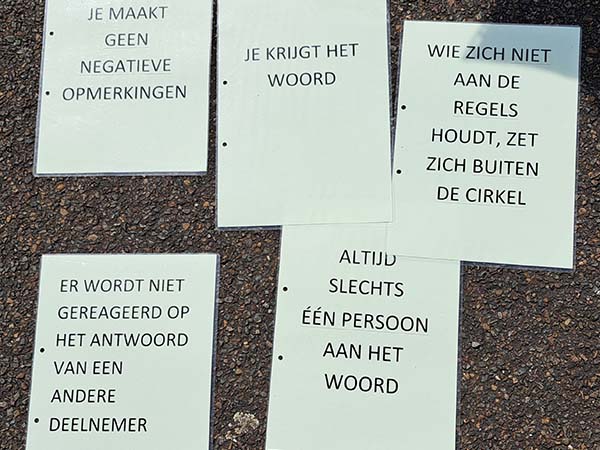 JE MAAKT
GEEN
NEGATIEVE
OPMERKINGEN
JE KRIJGT HET
WOORD
WIE ZICH NIET
AAN DE
REGELS
HOUDT, ZET
ZICH BUITEN
DE CIRKEL
ER WORDT NIET
GEREAGEERD OP
HET ANTWOORD
VAN EEN
ANDERE
DEELNEMER
ALTIJD
SLECHTS
ÉÉN PERSOON
AAN HET
WOORD